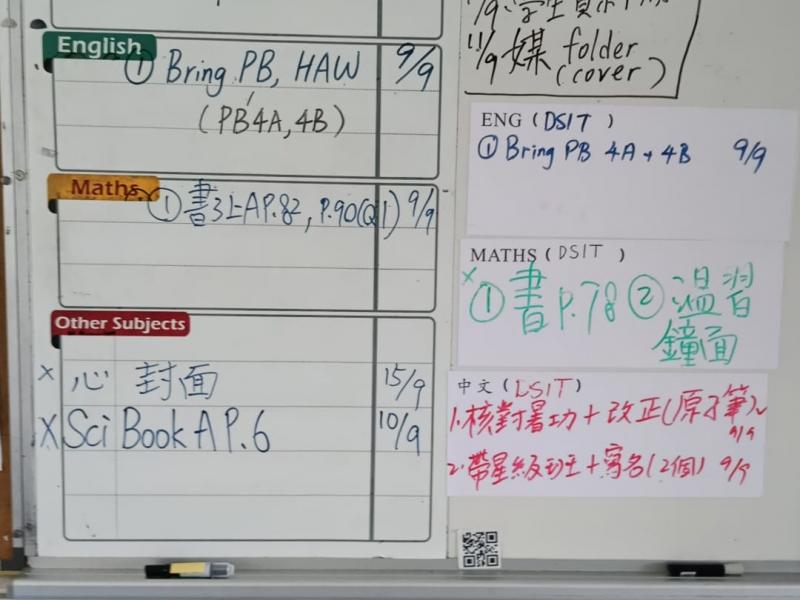 English
① Bring PB, HAW 9/9
(PB4A, 4B)
Maths
① 書3上A P.82, P.90(Q1) 9/9
Other Subjects
x 心 封面 15/9
X Sci Book A P.6 10/9
11/9 媒 folder
(cover)
ENG ( DSIT )
① Bring PB 4A + 4B 9/9
MATHS ( DSIT )
x ① 書 P.78 ② 溫習
鐘面
中文 ( DSIT )
1. 核對暑功 + 改正(原子筆)
9/9
2. 帶星級班 + 寫名(2個) 9/9